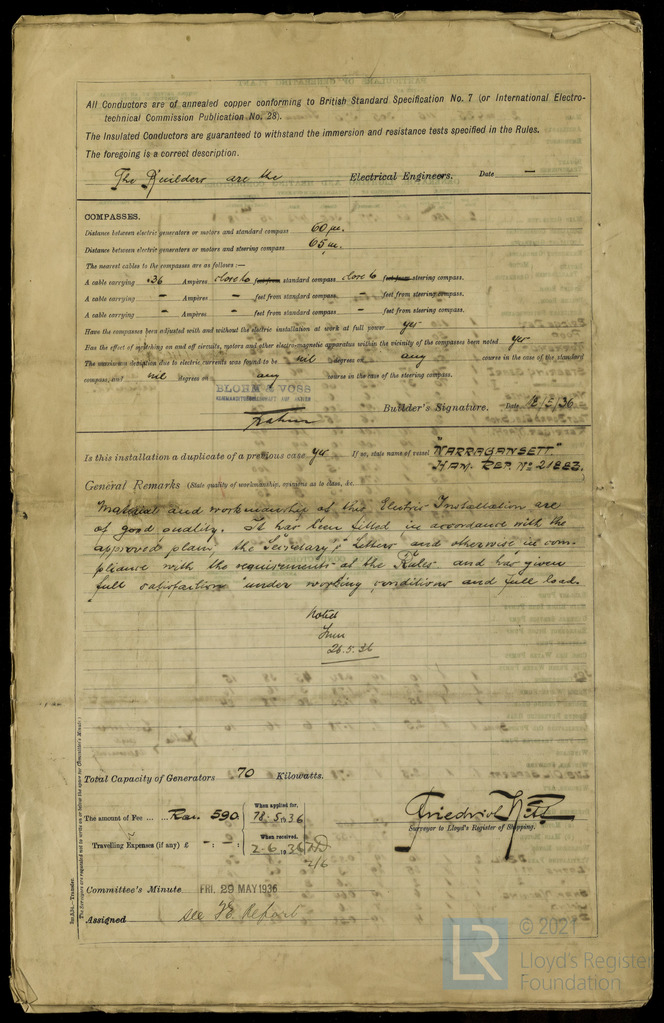 All Conductors are of annealed copper conforming to British Standard Specification No. 7 (or International Electro-
technical Commission Publication No. 28).
The Insulated Conductors are guaranteed to withstand the immersion and resistance tests specified in the Rules.
The foregoing is a correct description.
The Builders are the Electrical Engineers. Date —
COMPASSES.
Distance between electric generators or motors and standard compass 60 m.
Distance between electric generators or motors and steering compass 65 m.
The nearest cables to the compasses are as follows:—
A cable carrying .36 Ampères close to feet from standard compass close to feet from steering compass.
A cable carrying – Ampères – feet from standard compass. – feet from steering compass.
A cable carrying – Ampères – feet from standard compass. – feet from steering compass.
Have the compasses been adjusted with and without the electric installation at work at full power yes
Has the effect of switching on and off circuits, motors and other electro-magnetic apparatus within the vicinity of the compasses been noted yes
The maximum deviation due to electric currents was found to be nil degrees on any course in the case of the standard
compass, and nil degrees on any course in the case of the steering compass.
BLOHM & VOSS
KOMMANDITGESELLSCHAFT AUF AKTIEN
Builder's Signature. Date
Is this installation a duplicate of a previous case yes If so, state name of vessel "NARRAGANSETT."
HAM. REP. No 21883.
General Remarks (State quality of workmanship, opinions as to class, &c.
Material and workmanship of this Electric Installation are
of good quality. It has been fitted in accordance with the
approved plan, the Secretary's Letters and otherwise in com-
pliance with the requirements of the Rules and has given
full satisfaction under working conditions and full load.
Noted
26.5.36
Total Capacity of Generators 70 Kilowatts.
The amount of Fee ... 590. When applied for, 5.1936
Travelling Expenses (if any) £ –:–: When received, 2-6.1936
2/6
Surveyor to Lloyd's Register of Shipping.
Committee's Minute FRI. 29 MAY 1936
Assigned see F.E. Report
The Surveyors are requested not to write on or below the space for Committee's Minute.)
© 2021
LR
Lloyd's Register
Foundation